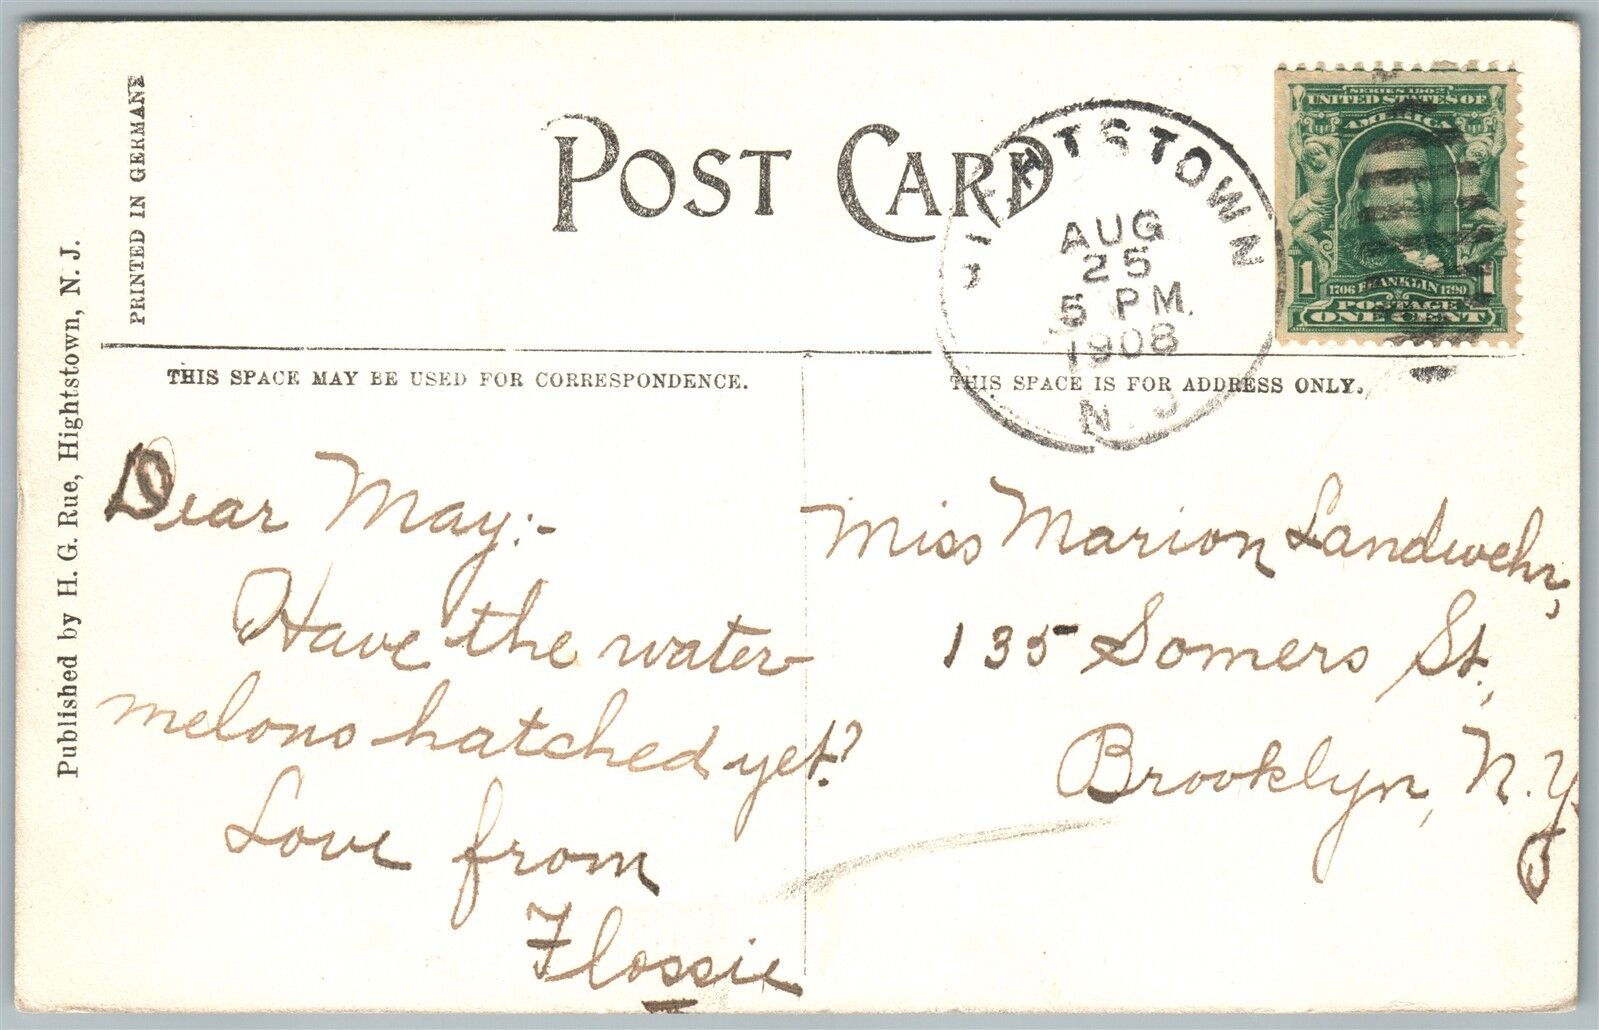 PRINTED IN GERMANY
Published by H. G. Rue, Hightstown, N. J.
POST CARD
HIGHTSTOWN
AUG
25
5 PM.
1908
N. J.
SERIES 1902
UNITED STATES OF
AMERICA
1 1706 FRANKLIN 1790 1
POSTAGE
ONE CENT
THIS SPACE MAY BE USED FOR CORRESPONDENCE.
THIS SPACE IS FOR ADDRESS ONLY.
Dear May:-
Have the water-
melons hatched yet?
Love from
Flossie
Miss Marion Landwehr,
135 Somers St.,
Brooklyn, N. Y.